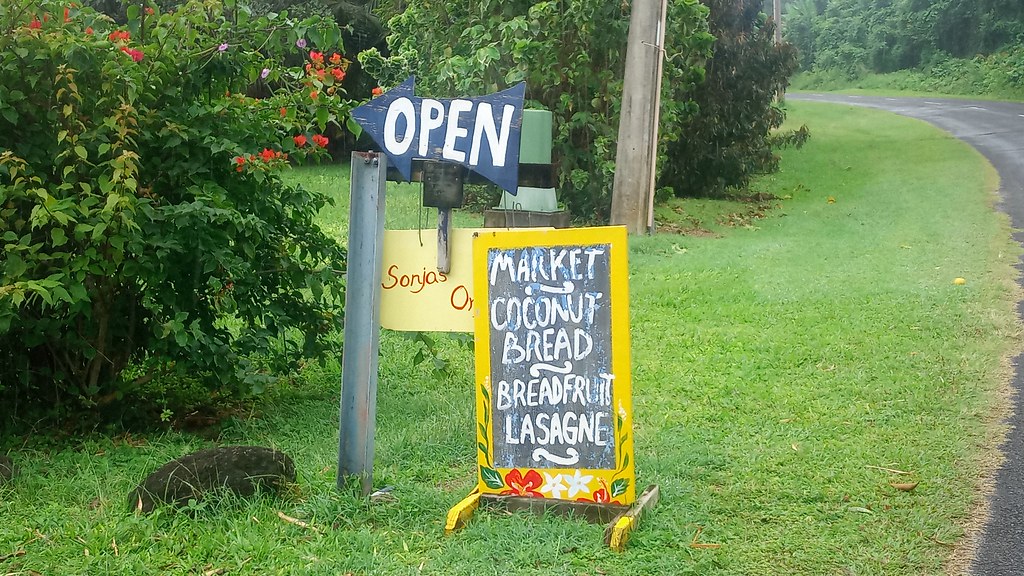 OPEN
Sonjas
MARKET
COCONUT
BREAD
BREADFRUIT
LASAGNE